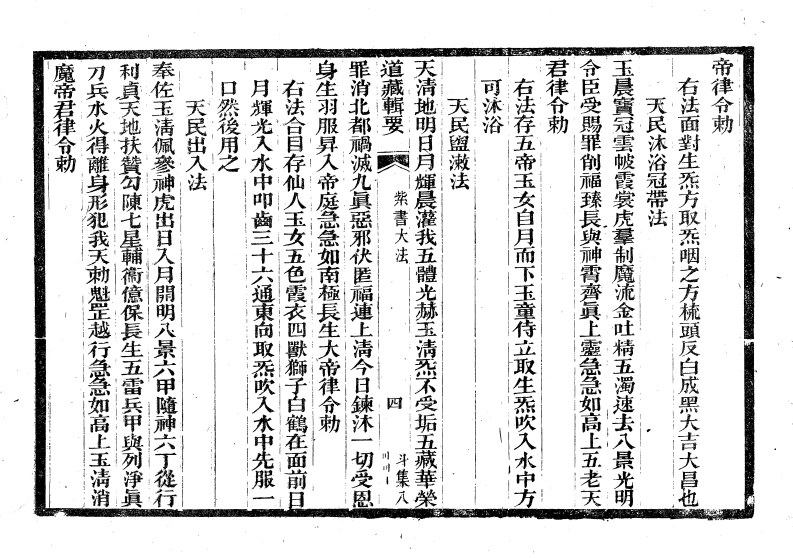 帝律令勅
右法面對生炁方取炁咽之方梳頭反白成黑大吉大昌也
天民沐浴冠帶法
玉晨寶冠雲帔霞裳虎羣制魔流金吐精五濁速去八景光明
令臣受賜罪削福臻長與神霄齊眞上靈急急如高上五老天
君律令勅
右法存五帝玉女自月而下玉童侍立取生炁吹入水中方
可沐浴
天民盥漱法
天清地明日月輝晨灌我五體光赫玉清炁不受垢五藏華榮
道藏輯要
紫書大法
四
斗集八
罪消北都禍滅九眞惡邪伏匿福連上清今日鍊沐一切受恩
身生羽服昇入帝庭急急如南極長生大帝律令勅
右法合目存仙人玉女五色霞衣四獸獅子白鶴在面前日
月輝光入水中叩齒三十六通東向取炁吹入水中先服一
口然後用之
天民出入法
奉佐玉清佩參神虎出日入月開明八景六甲隨神六丁從行
利貞天地扶贊勾陳七星輔衞億保長生五雷兵甲與列淨眞
刀兵水火得離身形犯我天勅魁罡越行急急如高上玉清消
魔帝君律令勅